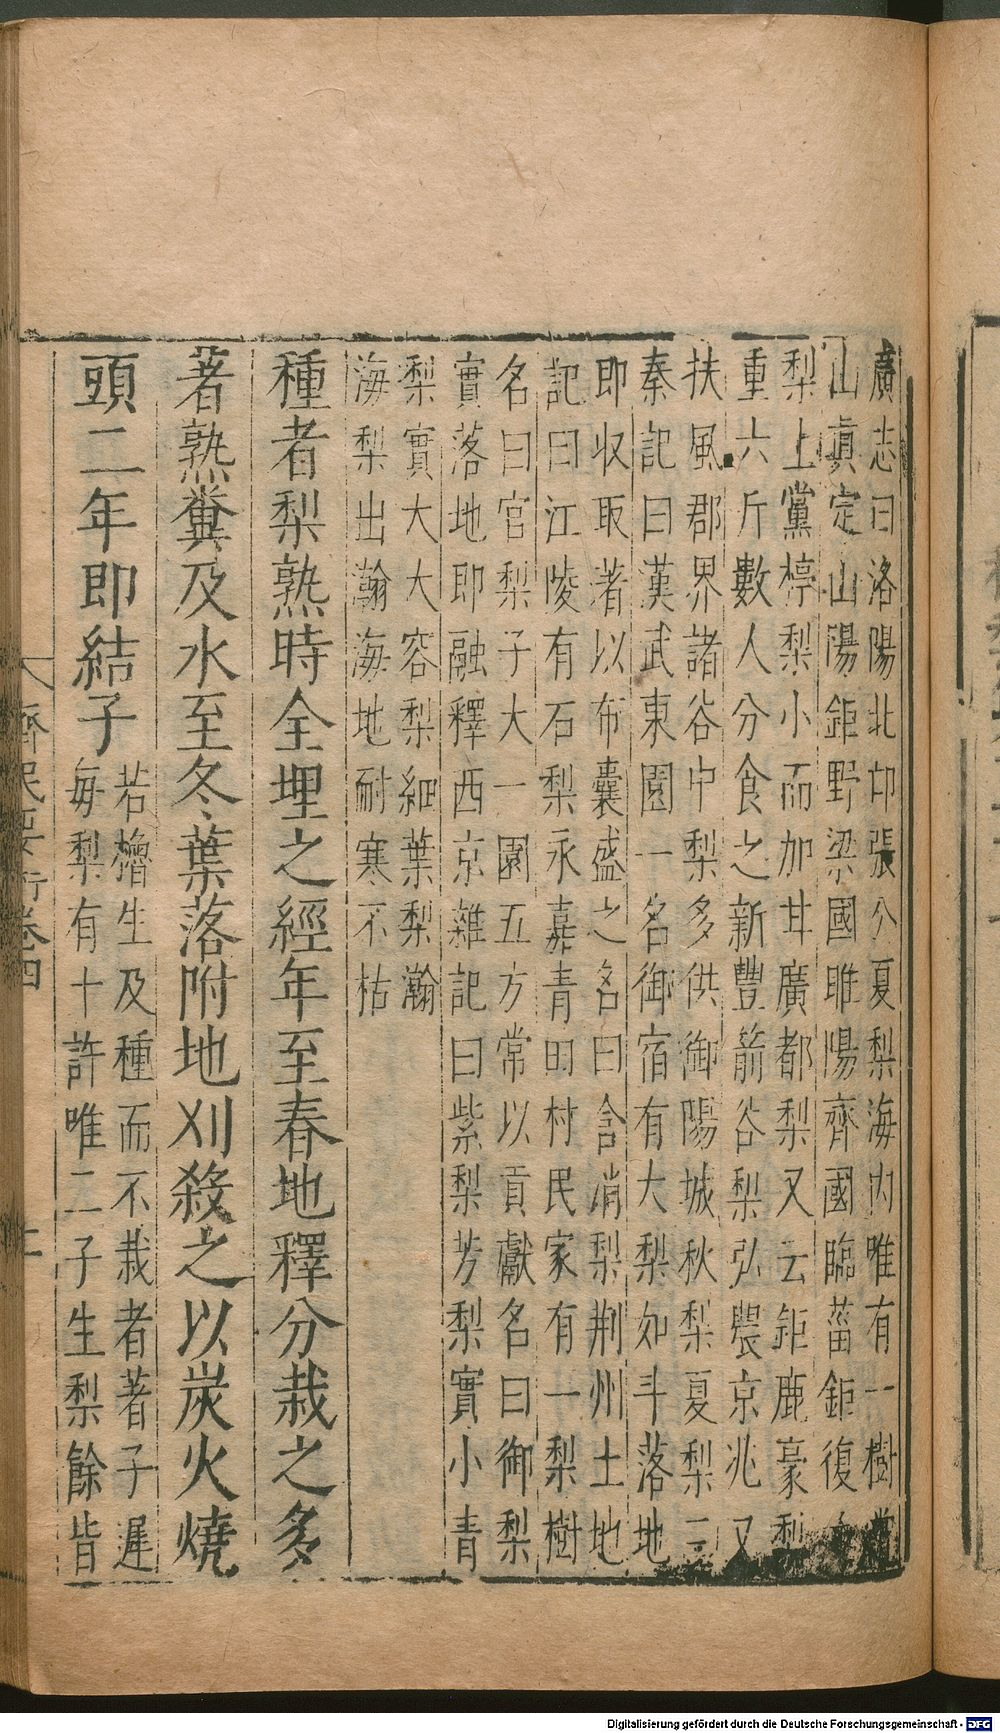 廣志曰洛陽北邙張公夏梨海內唯有一樹常
山真定山陽鉅野梁國睢陽齊國臨菑鉅復
梨上黨楟梨小而加甘廣都梨又云鉅鹿豪梨
重六斤數人分食之新豐箭谷梨弘農京兆又
扶風郡界諸谷中梨多供御陽城秋梨夏梨三
秦記曰漢武東園一名御宿有大梨如斗落地
即收取著以布囊盛之名曰含消梨荆州土地
記曰江陵有石梨永嘉青田村民家有一梨樹
名曰官梨子大一園五方常以貢獻名曰御梨
實落地即融釋西京雜記曰紫梨芳梨實小青
梨實大大容梨細葉梨瀚
海梨出瀚海地耐寒不枯
種者梨熟時全埋之經年至春地釋分栽之多
著熟糞及水至冬葉落附地刈殺之以炭火燒
頭二年即結子
若櫓生及種而不栽者著子遲
每梨有十許唯二子生梨餘皆
齊民要術卷四
Digitalisierung gefördert durch die Deutsche Forschungsgemeinschaft - DFG